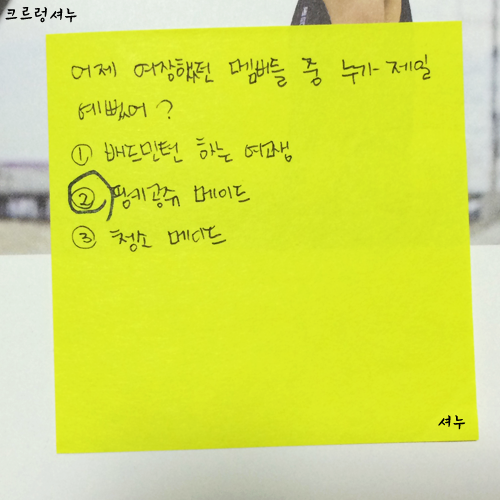 크르렁셔누
어제 여장했던 멤버들 중 누가 제일
예뻤어?
① 배드민턴 하는 여고생
② 핑계공쥬 메이드
③ 청소 메이드
셔누